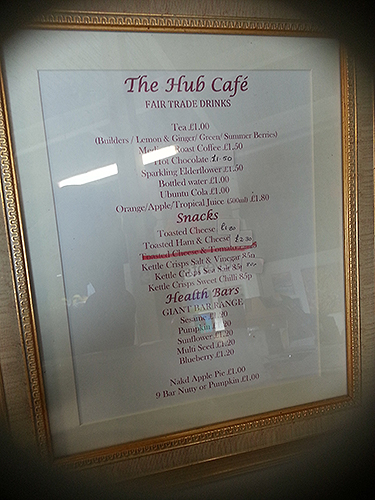 The Hub Café
FAIR TRADE DRINKS
Tea £1.00
(Builders / Lemon & Ginger/ Green/ Summer Berries)
Medium Roast Coffee £1.50
Hot Chocolate £1.50
Sparkling Elderflower £1.50
Bottled water £1.00
Ubuntu Cola £1.00
Orange/Apple/Tropical Juice (500ml) £1.80
Snacks
Toasted Cheese
Toasted Ham & Cheese £2.50
Toasted Cheese & Tomato
Kettle Crisps Salt & Vinegar 85p
Kettle Crisps Sea Salt 85p
Kettle Crisps Sweet Chilli 85p
Health Bars
GIANT BAR RANGE
Sesame £1.20
Pumpkin £1.20
Sunflower £1.20
Multi Seed £1.20
Blueberry £1.20
Nakd Apple Pie £1.00
9 Bar Nutty or Pumpkin £1.00